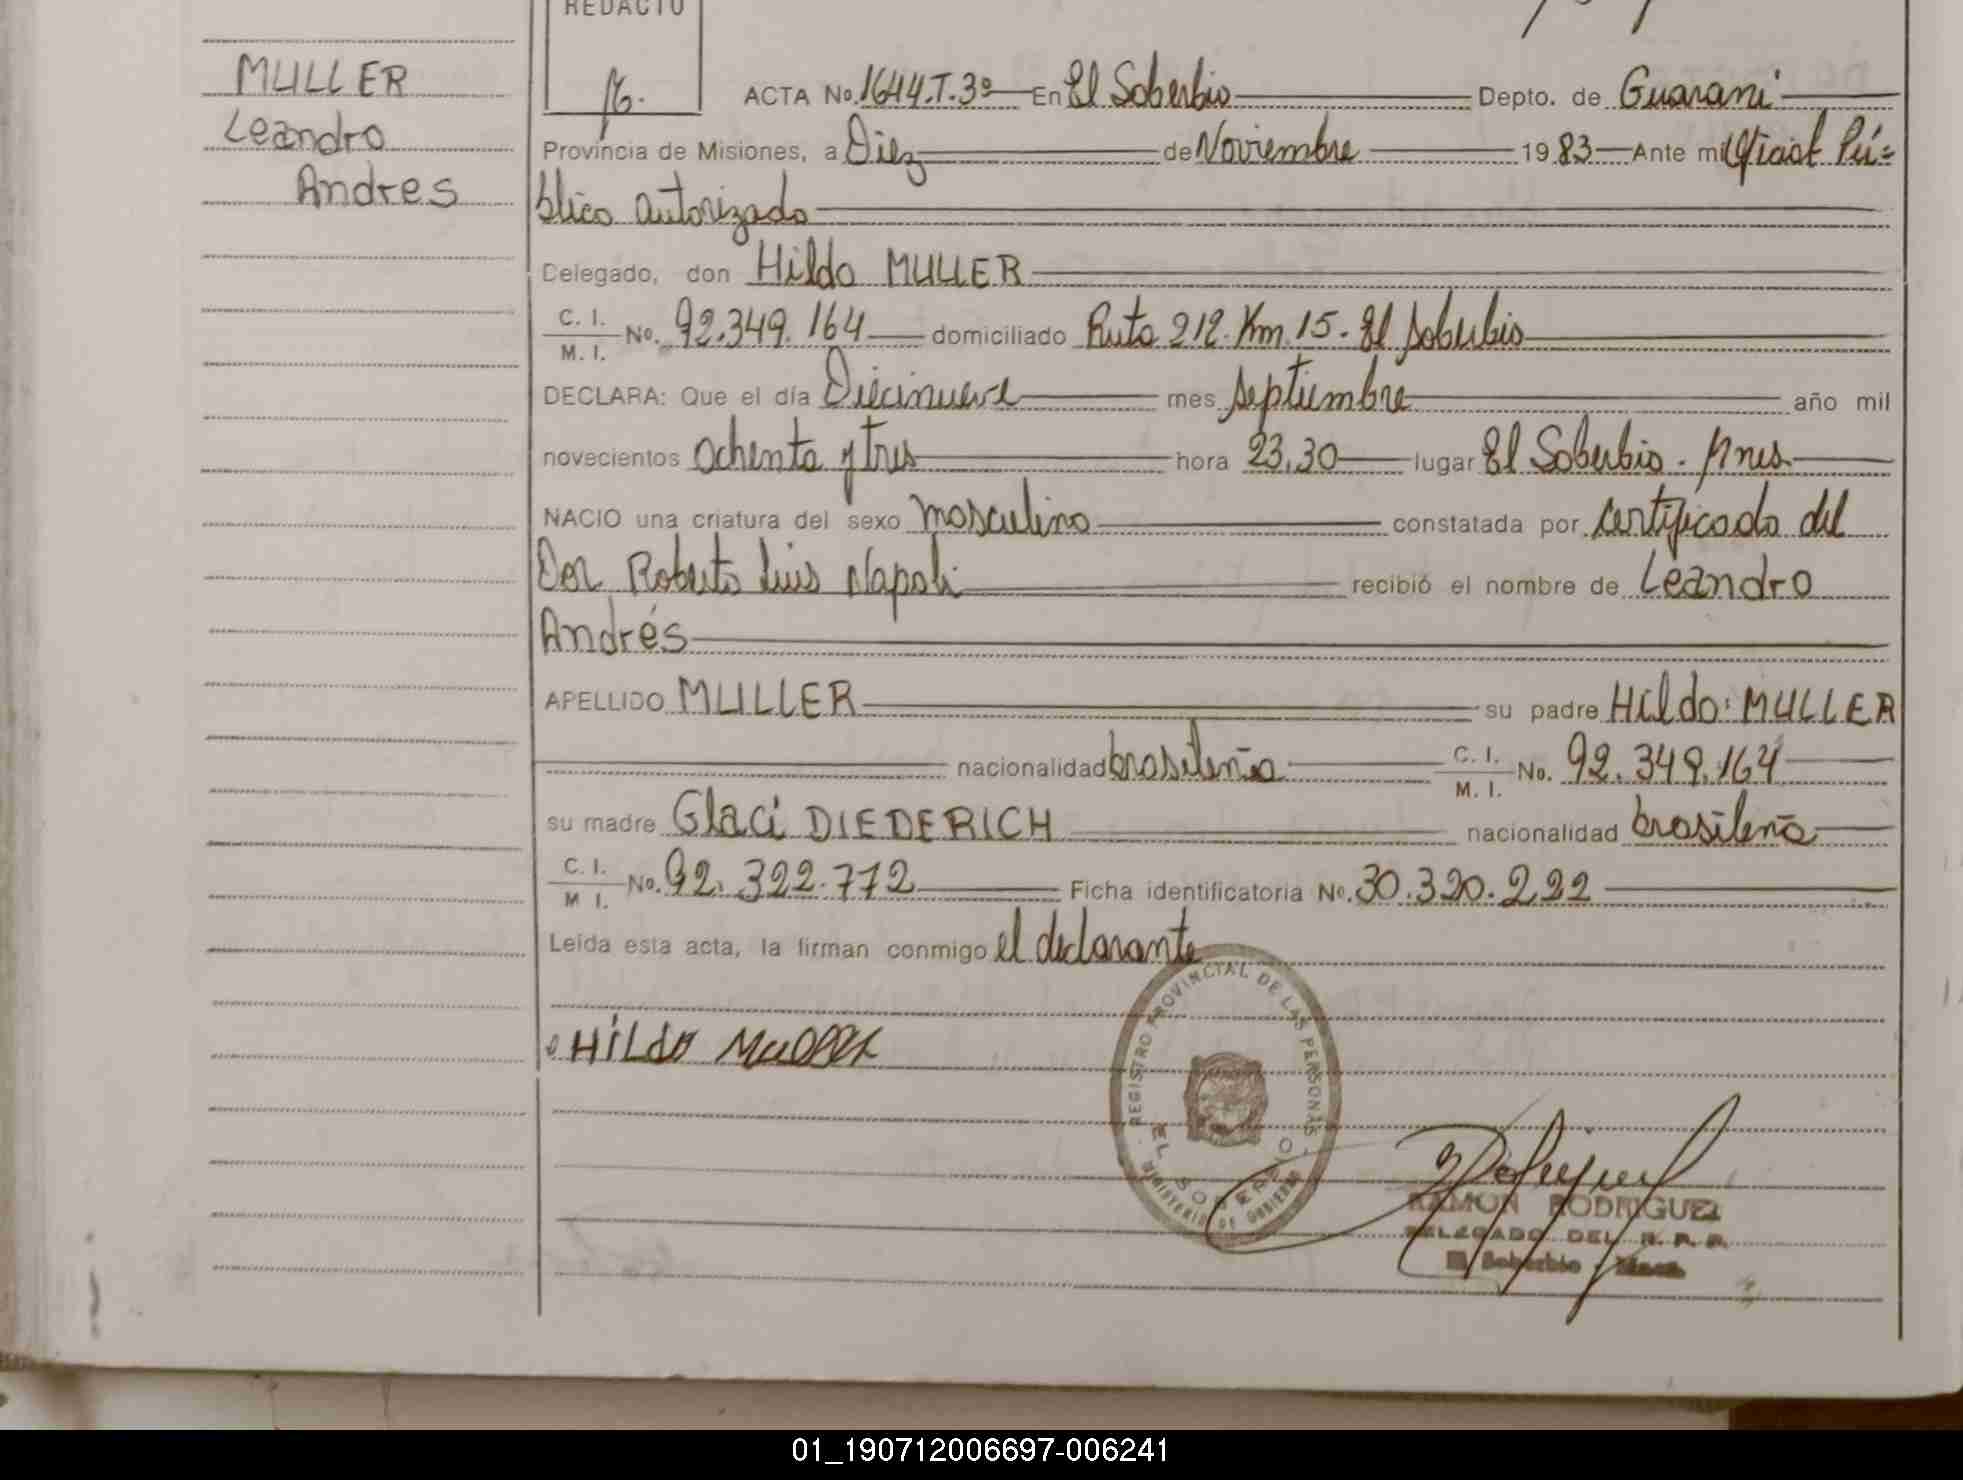 REDACTO
MULLER
Leandro
Andres
ACTA No. 1644.T.3º En El Soberbio Depto. de Guarani
Provincia de Misiones, a Diez de Noviembre 1983 Ante mi Oficial Pú=
blico autorizado
Delegado, don Hildo MULLER
C. I.
M. I. No. 92.349.164 domiciliado Ruta 212. Km. 15. El Soberbio
DECLARA: Que el día Diecinueve mes septiembre año mil
novecientos ochenta y tres hora 23,30 lugar El Soberbio. Mnes
NACIO una criatura del sexo masculino constatada por certificado del
Don Roberto Luis Napoli recibió el nombre de Leandro
Andrés
APELLIDO MULLER su padre Hildo MULLER
nacionalidad brasileña C. I.
M. I. No. 92.349.164
su madre Glaci DIEDERICH nacionalidad brasileña
C. I.
M I. No. 92.322.772 Ficha identificatoria No. 30.320.222
Leída esta acta, la firman conmigo el declarante
HiLdo Muller
REGISTRO PROVINCIAL DE LAS PERSONAS
EL SOBERBIO
MINISTERIO DE GOBIERNO
RAMON RODRIGUEZ
DELEGADO DEL R. P. P.
El Soberbio - Mnes.
01_190712006697-006241